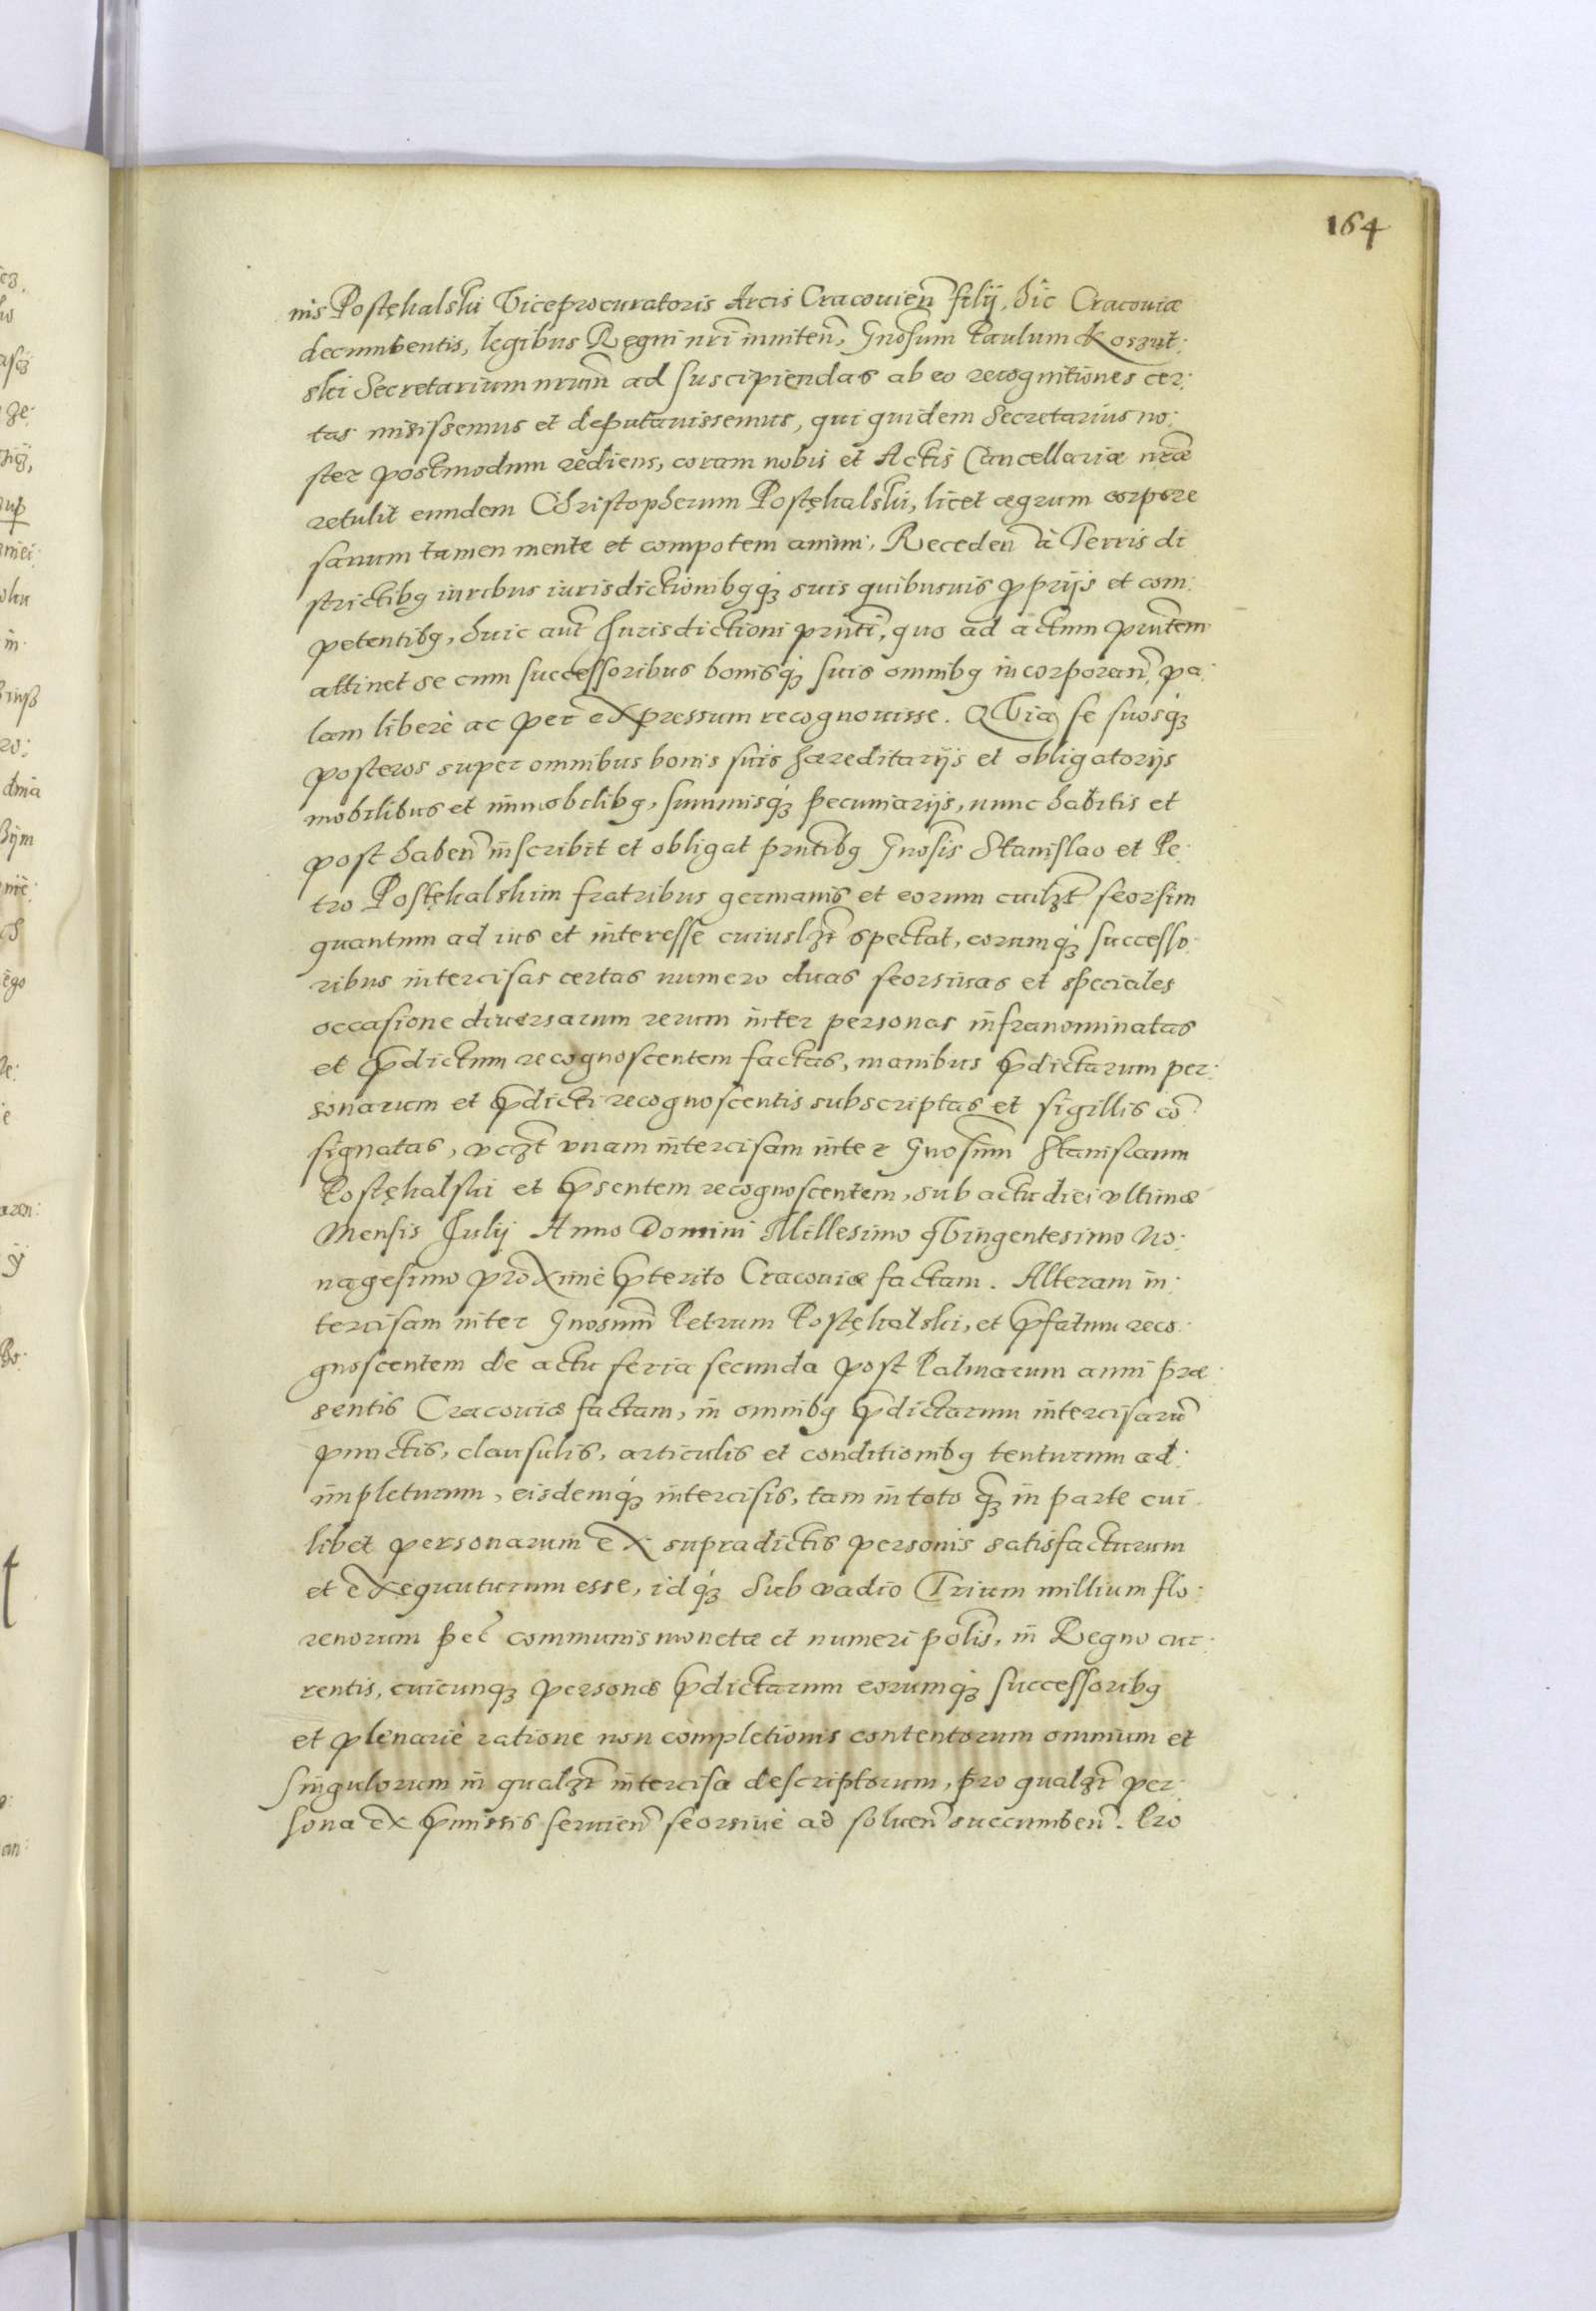 164
nis Postękalski Viceprocuratoris Arcis Cracouien̄ filij, hic Cracouiæ
decumbentis, legibus Regni nr̄i inniten̄, Gnosum Paulum Koszut:
ski Secretarium nrum̄ ad suscipiendas ab eo recognitiones cer:
tas misissemus et deputauissemus, qui quidem Secretarius no:
ster postmodum rediens, coram nobis et Actis Cancellariæ nr̄æ
retulit eundem Christopherum Postękalski, licet ægrum corpore
sanum tamen mente et compotem animi, Receden̄ à Terris di
strictibꝰ iuribus iurisdictionibꝰqꝫ suis quibusuis ꝓprijs et com:
petentibꝰ, huic aut̄ Jurisdictioni prn̄ti, quo ad actum prn̄tem
attinet se cum successoribus bonisqꝫ suis omnibꝰ incorporan̄, pa:
lam liberè ac per expressum recognouisse. QVia se suosqꝫ
posteros super omnibus bonis suis hæreditarijs et obligatorijs
mobilibus et immobilibꝰ, summisqꝫ pecuniarijs, nunc habitis et
post haben̄ inscribit et obligat prn̄tibꝰ Gnosis Stanislao et Pe:
tro Postękalskim fratribus germanis et eorum cuilꝫt seorsim
quantum ad ius et interesse cuiuslꝫt spectat, eorumqꝫ successo:
ribus intercisas certas numero duas seorsiuas et speciales
occasione diuersarum rerum inter personas infranominatas
et p̄dictum recognoscentem factas, manibus p̄dictarum per:
sonarum et p̄dicti recognoscentis subscriptas et sigillis cō
signatas, vcꝫt vnam intercisam inter Gnosum̄ Stanislaum
Postękalski et p̄sentem recognoscentem, sub actu diei vltimæ
Mensis Julij Anno Domini Millesimo qVingentesimo No:
nagesimo proximè p̄terito Cracouiæ factam. Alteram in:
tercisam inter Gnosum̄ Petrum Postękalski, et p̄fatum reco:
gnoscentem de actu feria secunda post Palmarum anni præ:
sentis Cracouiæ factam, in omnibꝰ p̄dictarum intercisarū
punctis, clausulis, articulis et conditionibꝰ tenturum ad:
impleturum, eisdemqꝫ intercisis, tam in toto qꝫ in parte cui
libet personarum ex supradictis personis satisfacturum
et exequuturum esse, idqꝫ sub vadio Trium millium flo:
renorum pec̄ communis monetæ et numeri polis̄, in Regno cur:
rentis, cuicunqꝫ personæ p̄dictarum eorumqꝫ successoribꝰ
et plenariè ratione non completionis contentorum omnium et
singulorum in qualꝫt intercisa descriptorum, pro qualꝫt per:
sona ex p̄missis seruien̄ seorsiuè ad soluen̄ succumben̄. Pro